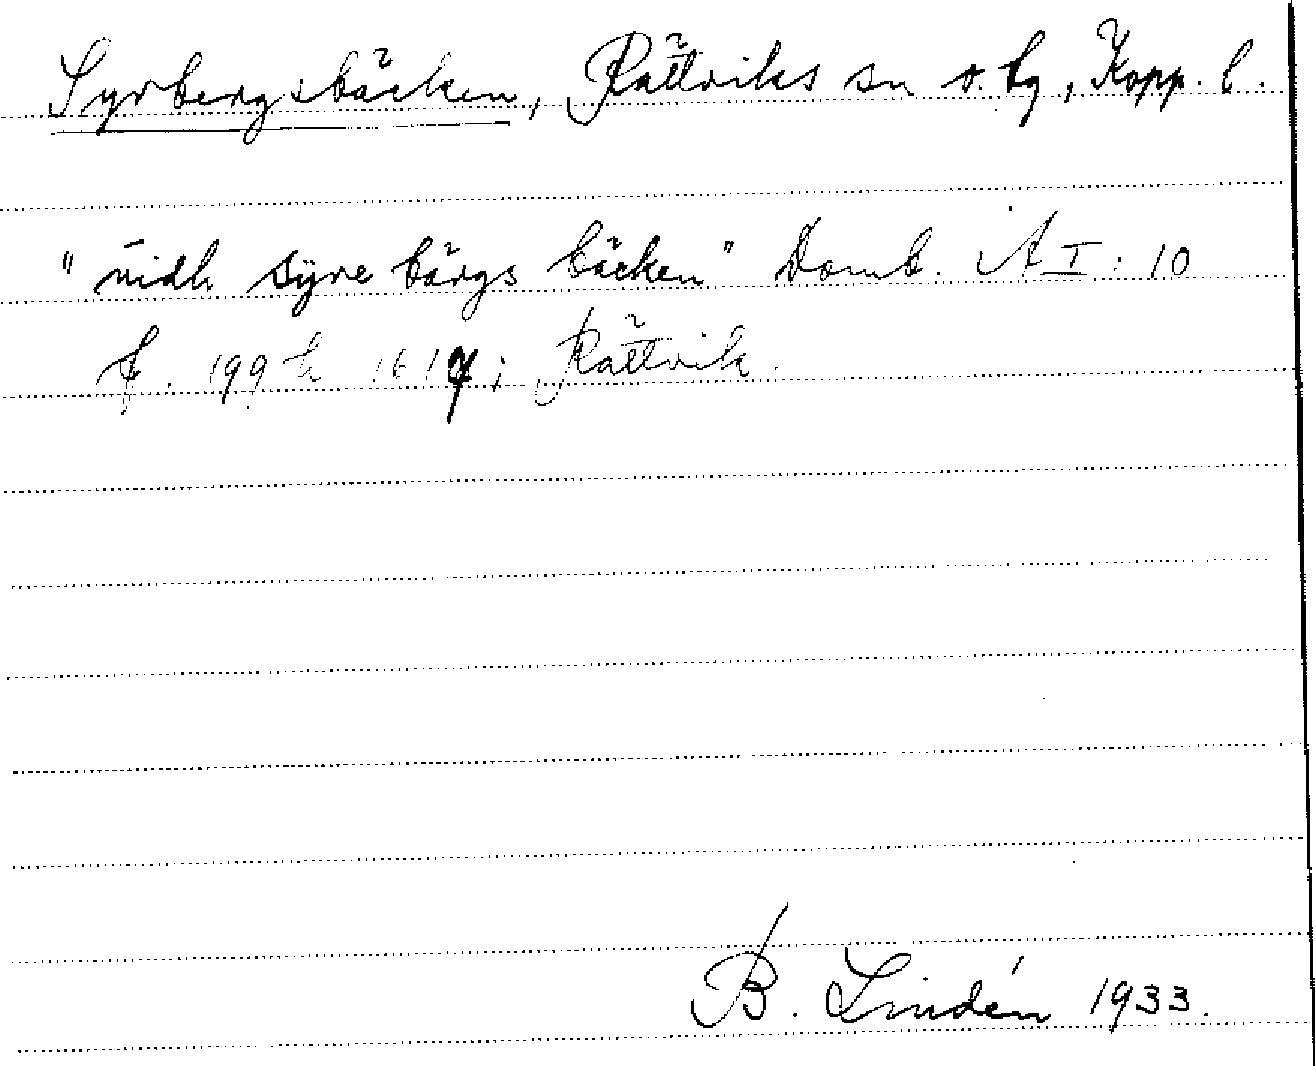 Syrbergsbäcken, Rättviks sn o. tg, Kopp. l.
"vidh syre bärgs bäcken" Domb. A I: 10
f. 199 1617; Rättvik.
B. Lindén 1933.